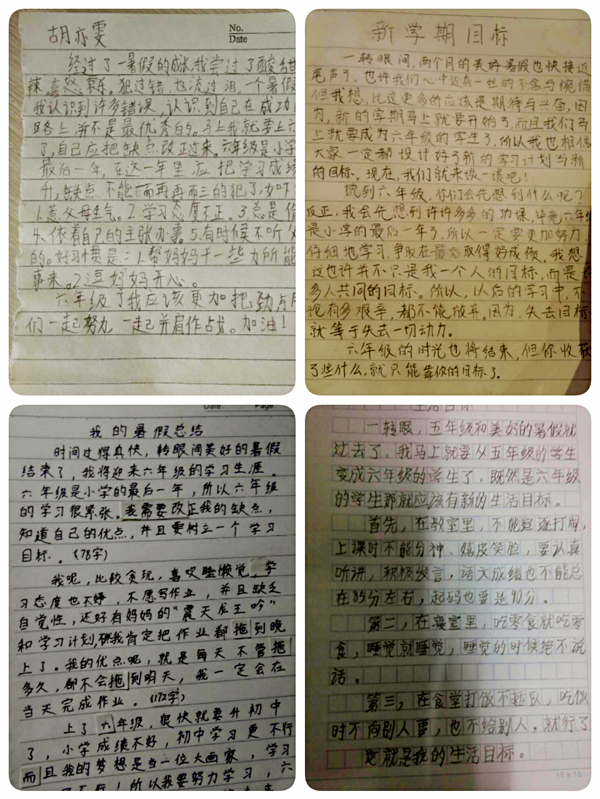 胡亦雯
No.
Date
经过了一暑假的成长,我尝过了酸甜
辣喜怒哀乐,犯过错,也流过泪,一个暑假
我认识到许多错误,认识到自己在成功
路上并不是最优秀的。马上我就要上六
了,自己应把缺点改正过来,六年级是小学
最后一年,在这一年里,应把学习成绩
升,缺点不能一而再再而三的犯了,如
人惹父母生气。2.学习态度不正。3.总是
4.依着自己的主张办事。5.有时候不听
的。好习惯是:1.帮妈妈干一些力所能
事来。2.逗妈妈开心。
六年级了我应该更加把劲
们一起努力,一起并肩作战。加油!
新学期目标
一转眼间,两个月的美好暑假也快接近
尾声了,也许我们心中还有一丝的不舍与惋惜
但我想,比这更多的应该是期待与兴奋,因
为,新的学期马上就要开始了,而且我们马
上就要成为六年级的学生了,所以我也相信
大家一定都设计好了新的学习计划与新
的目标。现在,我们就来谈一谈吧!
说到六年级,你们会先想到什么呢?
反正,我会先想到许许多多的功课,毕竟六年级
是小学的最后一年了,所以一定要更加努力
仔细地学习,争取在最后取得好成绩,我想
这也许并不只是我一个人的目标,而是
多人共同的目标。所以,以后的学习中,不
论有多艰辛,都不能放弃。因为,失去目标
就等于失去一切动力。
六年级的时光也将结束,但你收获
了些什么,就只能靠你的目标了。
Date Page
我的暑假总结
时间过得真快,转眼间美好的暑假
结束了,我将迎来六年级的学习生涯。
六年级是小学的最后一年,所以六年级
的学习很紧张。我需要改正我的缺点,
知道自己的优点,并且要树立一个学习
目标。(78字)
我呢,比较贪玩,喜欢睡懒觉,学
习态度也不好,不愿写作业,并且缺乏
自觉性,还好有妈妈的“震天龙王吟”
和学习计划,不然我肯定把作业都拖到晚
上了。我的优点呢,就是每天不管拖
多久,都不会拖到明天,我一定会在
当天完成作业。(172字)
上了六年级,很快就要升初中
了,小学成绩不好,初中学习更不行
而且我的梦想是当一位大画家,学习
所以我要努力学习,六
生活目标
一转眼,五年级和美好的暑假就
过去了,我马上就要从五年级的学生
变成六年级的学生了,既然是六年级
的学生那就应该有新的生活目标。
首先,在教室里,不能追逐打闹,
上课时不能分神、嬉皮笑脸,要认真
听讲,积极发言,语文成绩也不能总
在85分左右,起码也要进90分。
第二,在寝室里,吃零食就吃零
食,睡觉就睡觉,睡觉的时候绝不说
话。
第三,在食堂打饭不插队,吃饭
时不向别人要,也不给别人。就行了
这就是我的生活目标。